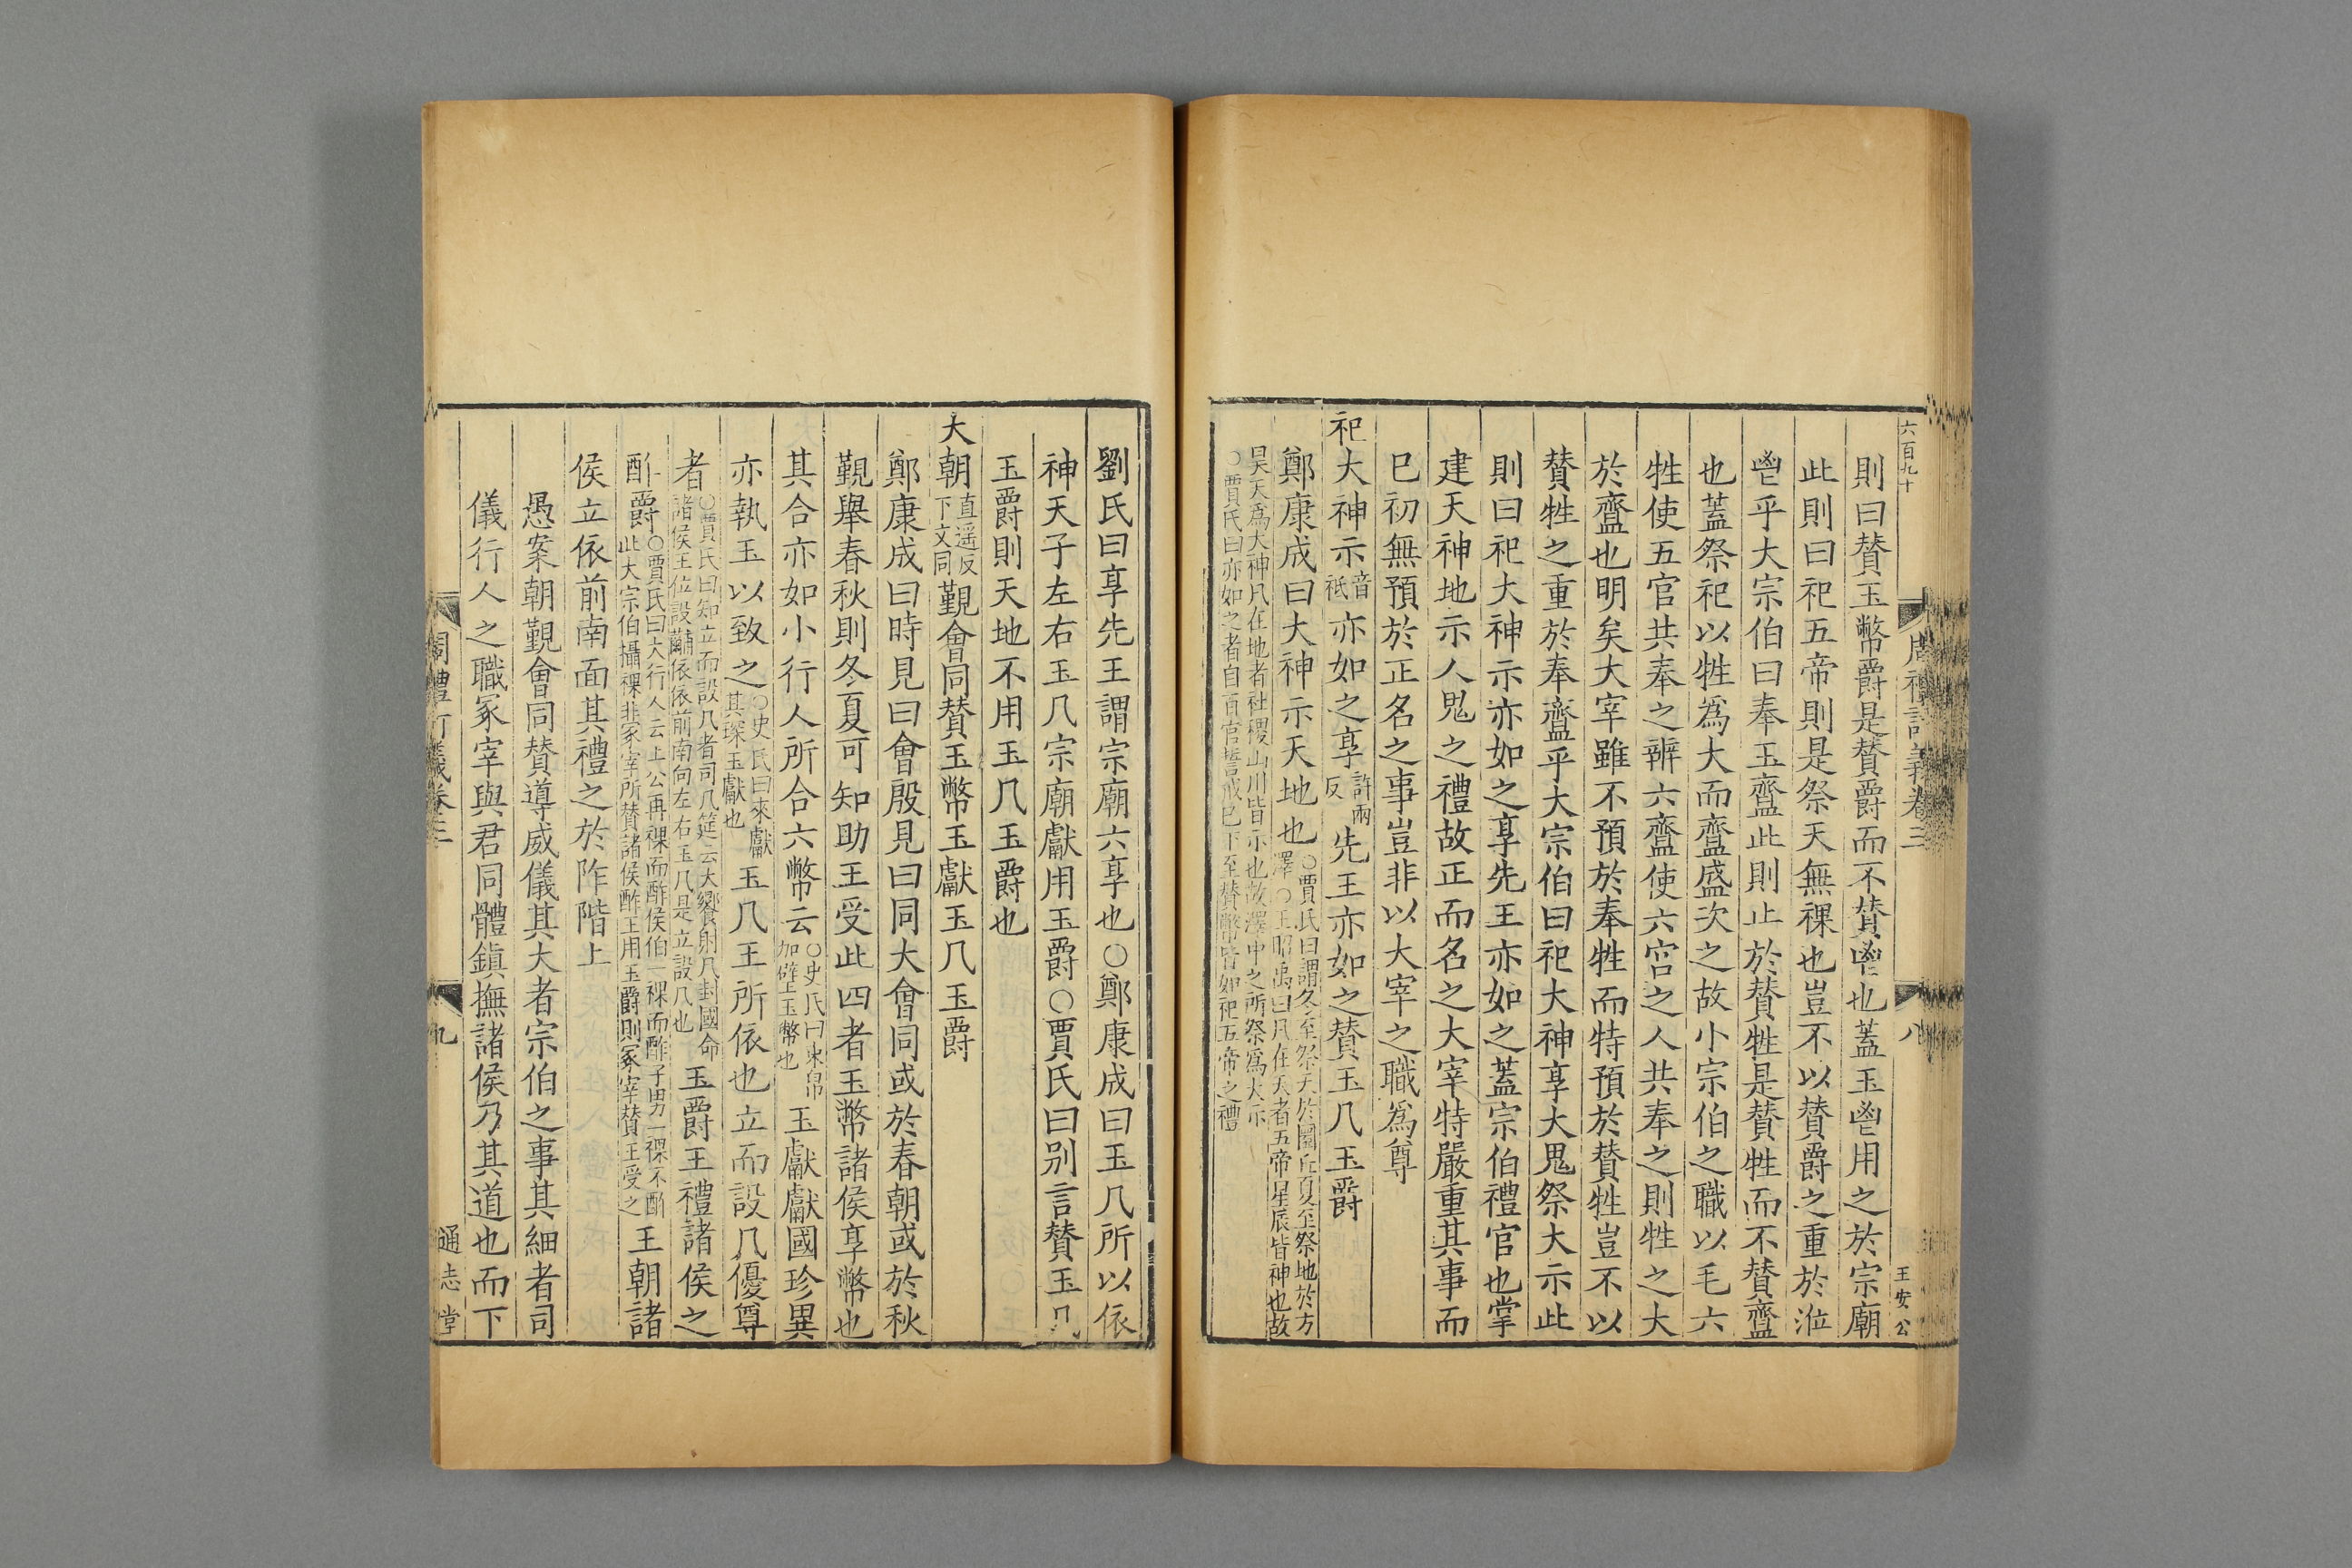 六百九十
周禮訂義卷三
八
王安公
則曰賛玉幣爵是賛爵而不賛鬯也蓋玉鬯用之於宗廟
此則曰祀五帝則是祭天無祼也豈不以賛爵之重於涖
鬯乎大宗伯曰奉玉齍此則止於賛牲是賛牲而不賛齍
也蓋祭祀以牲爲大而齍盛次之故小宗伯之職以毛六
牲使五官共奉之辨六齍使六宫之人共奉之則牲之大
於齍也明矣大宰雖不預於奉牲而特預於賛牲豈不以
賛牲之重於奉齍乎大宗伯曰祀大神享大鬼祭大示此
則曰祀大神示亦如之享先王亦如之蓋宗伯禮官也掌
建天神地示人鬼之禮故正而名之大宰特嚴重其事而
已初無預於正名之事豈非以大宰之職爲尊
祀大神示音祗亦如之享許兩反先王亦如之賛玉几玉爵
鄭康成曰大神示天地也○賈氏曰謂冬至祭天於圜丘夏至祭地於方澤○王昭禹曰凡在天者五帝星辰皆神也故
昊天爲大神凡在地者社稷山川皆示也故澤中之所祭爲大示○賈氏曰亦如之者自百官誓戒已下至賛幣皆如祀五帝之禮
劉氏曰享先王謂宗廟六享也○鄭康成曰玉几所以依
神天子左右玉几宗廟獻用玉爵○賈氏曰别言賛玉几
玉爵則天地不用玉几玉爵也
大朝直遥反下文同覲會同賛玉幣玉獻玉几玉爵
鄭康成曰時見曰會殷見曰同大會同或於春朝或於秋
覲舉春秋則冬夏可知助王受此四者玉幣諸侯享幣也
其合亦如小行人所合六幣云○史氏曰束帛加璧玉幣也玉獻獻國珍異
亦執玉以致之○史氏曰來獻其琛玉獻也玉几王所依也立而設几優尊
者○賈氏曰知立而設几者司几筵云大饗射凡封國命諸侯王位設黼依依前南向左右玉几是立設几也玉爵王禮諸侯之
酢爵○賈氏曰大行人云上公再祼而酢侯伯一祼而酢子男一祼不酢此大宗伯攝祼非冢宰所賛諸侯酢王用玉爵則冢宰賛王受之王朝諸
侯立依前南面其禮之於阼階上
愚案朝覲會同賛導威儀其大者宗伯之事其細者司
儀行人之職冢宰與君同體鎮撫諸侯乃其道也而下
周禮訂義卷三
九
通志堂